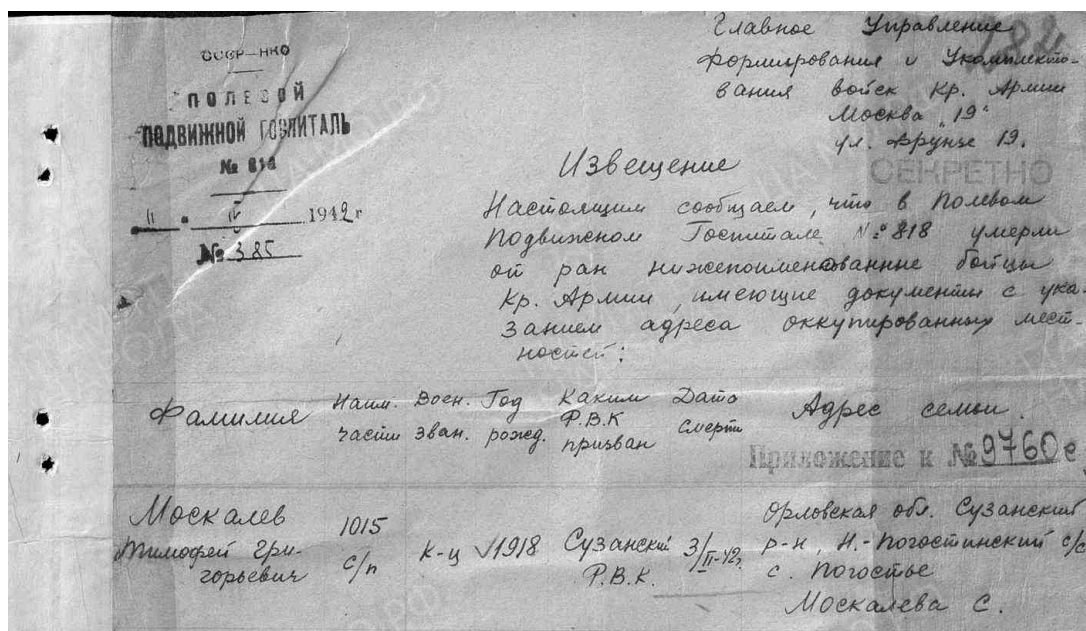 СССР—НКО
ПОЛЕВОЙ
ПОДВИЖНОЙ ГОСПИТАЛЬ
№ 818
1942 г
№ 385
Главное Управление
Формирования и Укомплекто-
вания войск Кр. Армии
Москва "19"
ул. Фрунзе 19.
СЕКРЕТНО
Извещение
Настоящим сообщаем, что в Полевом
Подвижном Госпитале №818 умерли
от ран нижепоименованные бойцы
Кр. Армии, имеющие документы с ука-
занием адреса оккупированных мест-
ностей:
Фамилия Наим. части Воен. зван. Год рожд. Каким Р.В.К призван Дата смерти Адрес семьи.
Приложение к №9760с
Москалев Тимофей Гри-
горьевич 1015 с/п к-ц 1918 Сузанский Р.В.К. 3/II-42г. Орловская обл. Сузанский
р-н, Н.-Погостинский с/с
с. Погостье
Москалева С.